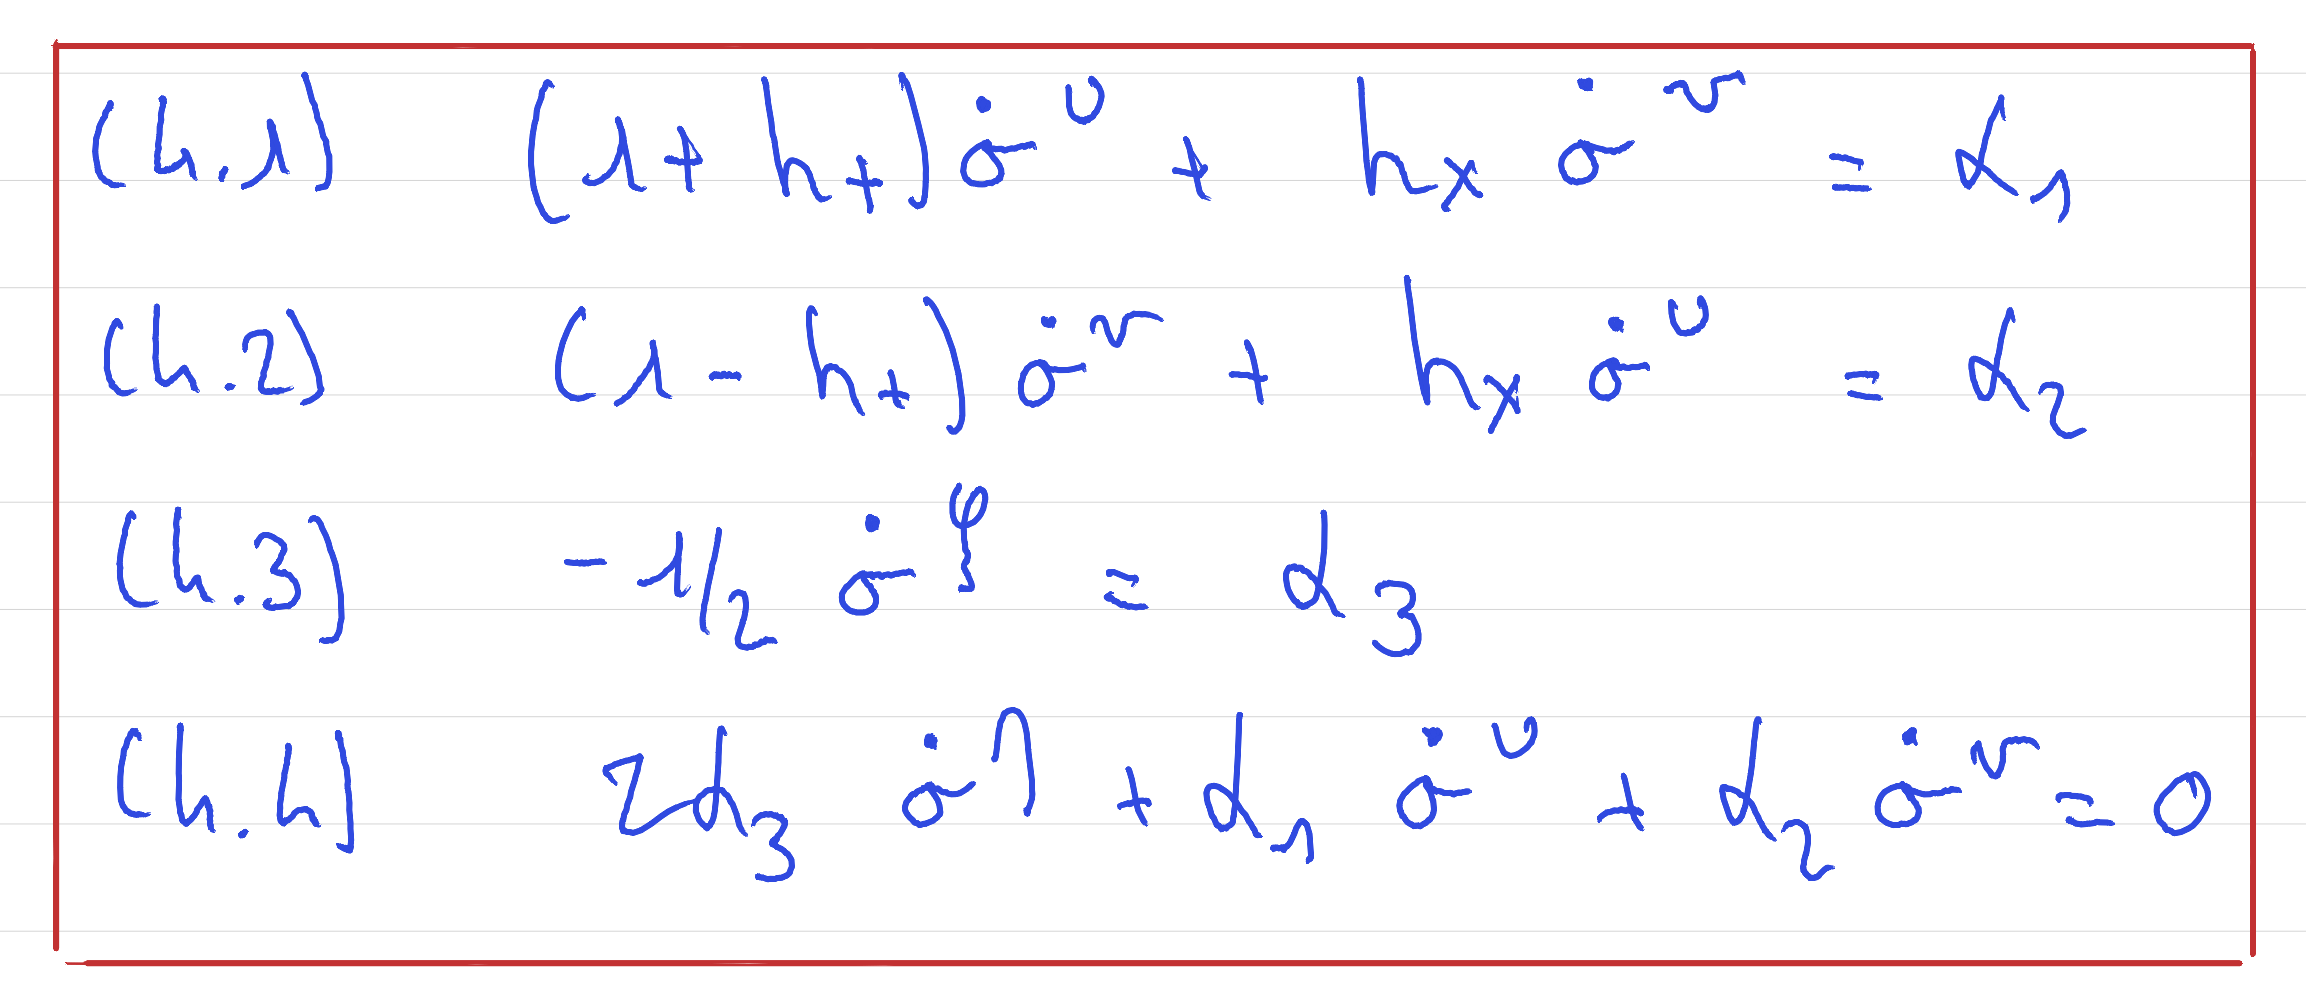 (4.1) (1 + h₊) σ̇ᵘ + hₓ σ̇ᵛ = α₁
(4.2) (1 - h₊) σ̇ᵛ + hₓ σ̇ᵘ = α₂
(4.3) -1/2 σ̇^ξ = α₃
(4.4) 2α₃ σ̇^η + α₁ σ̇ᵘ + α₂ σ̇ᵛ = 0